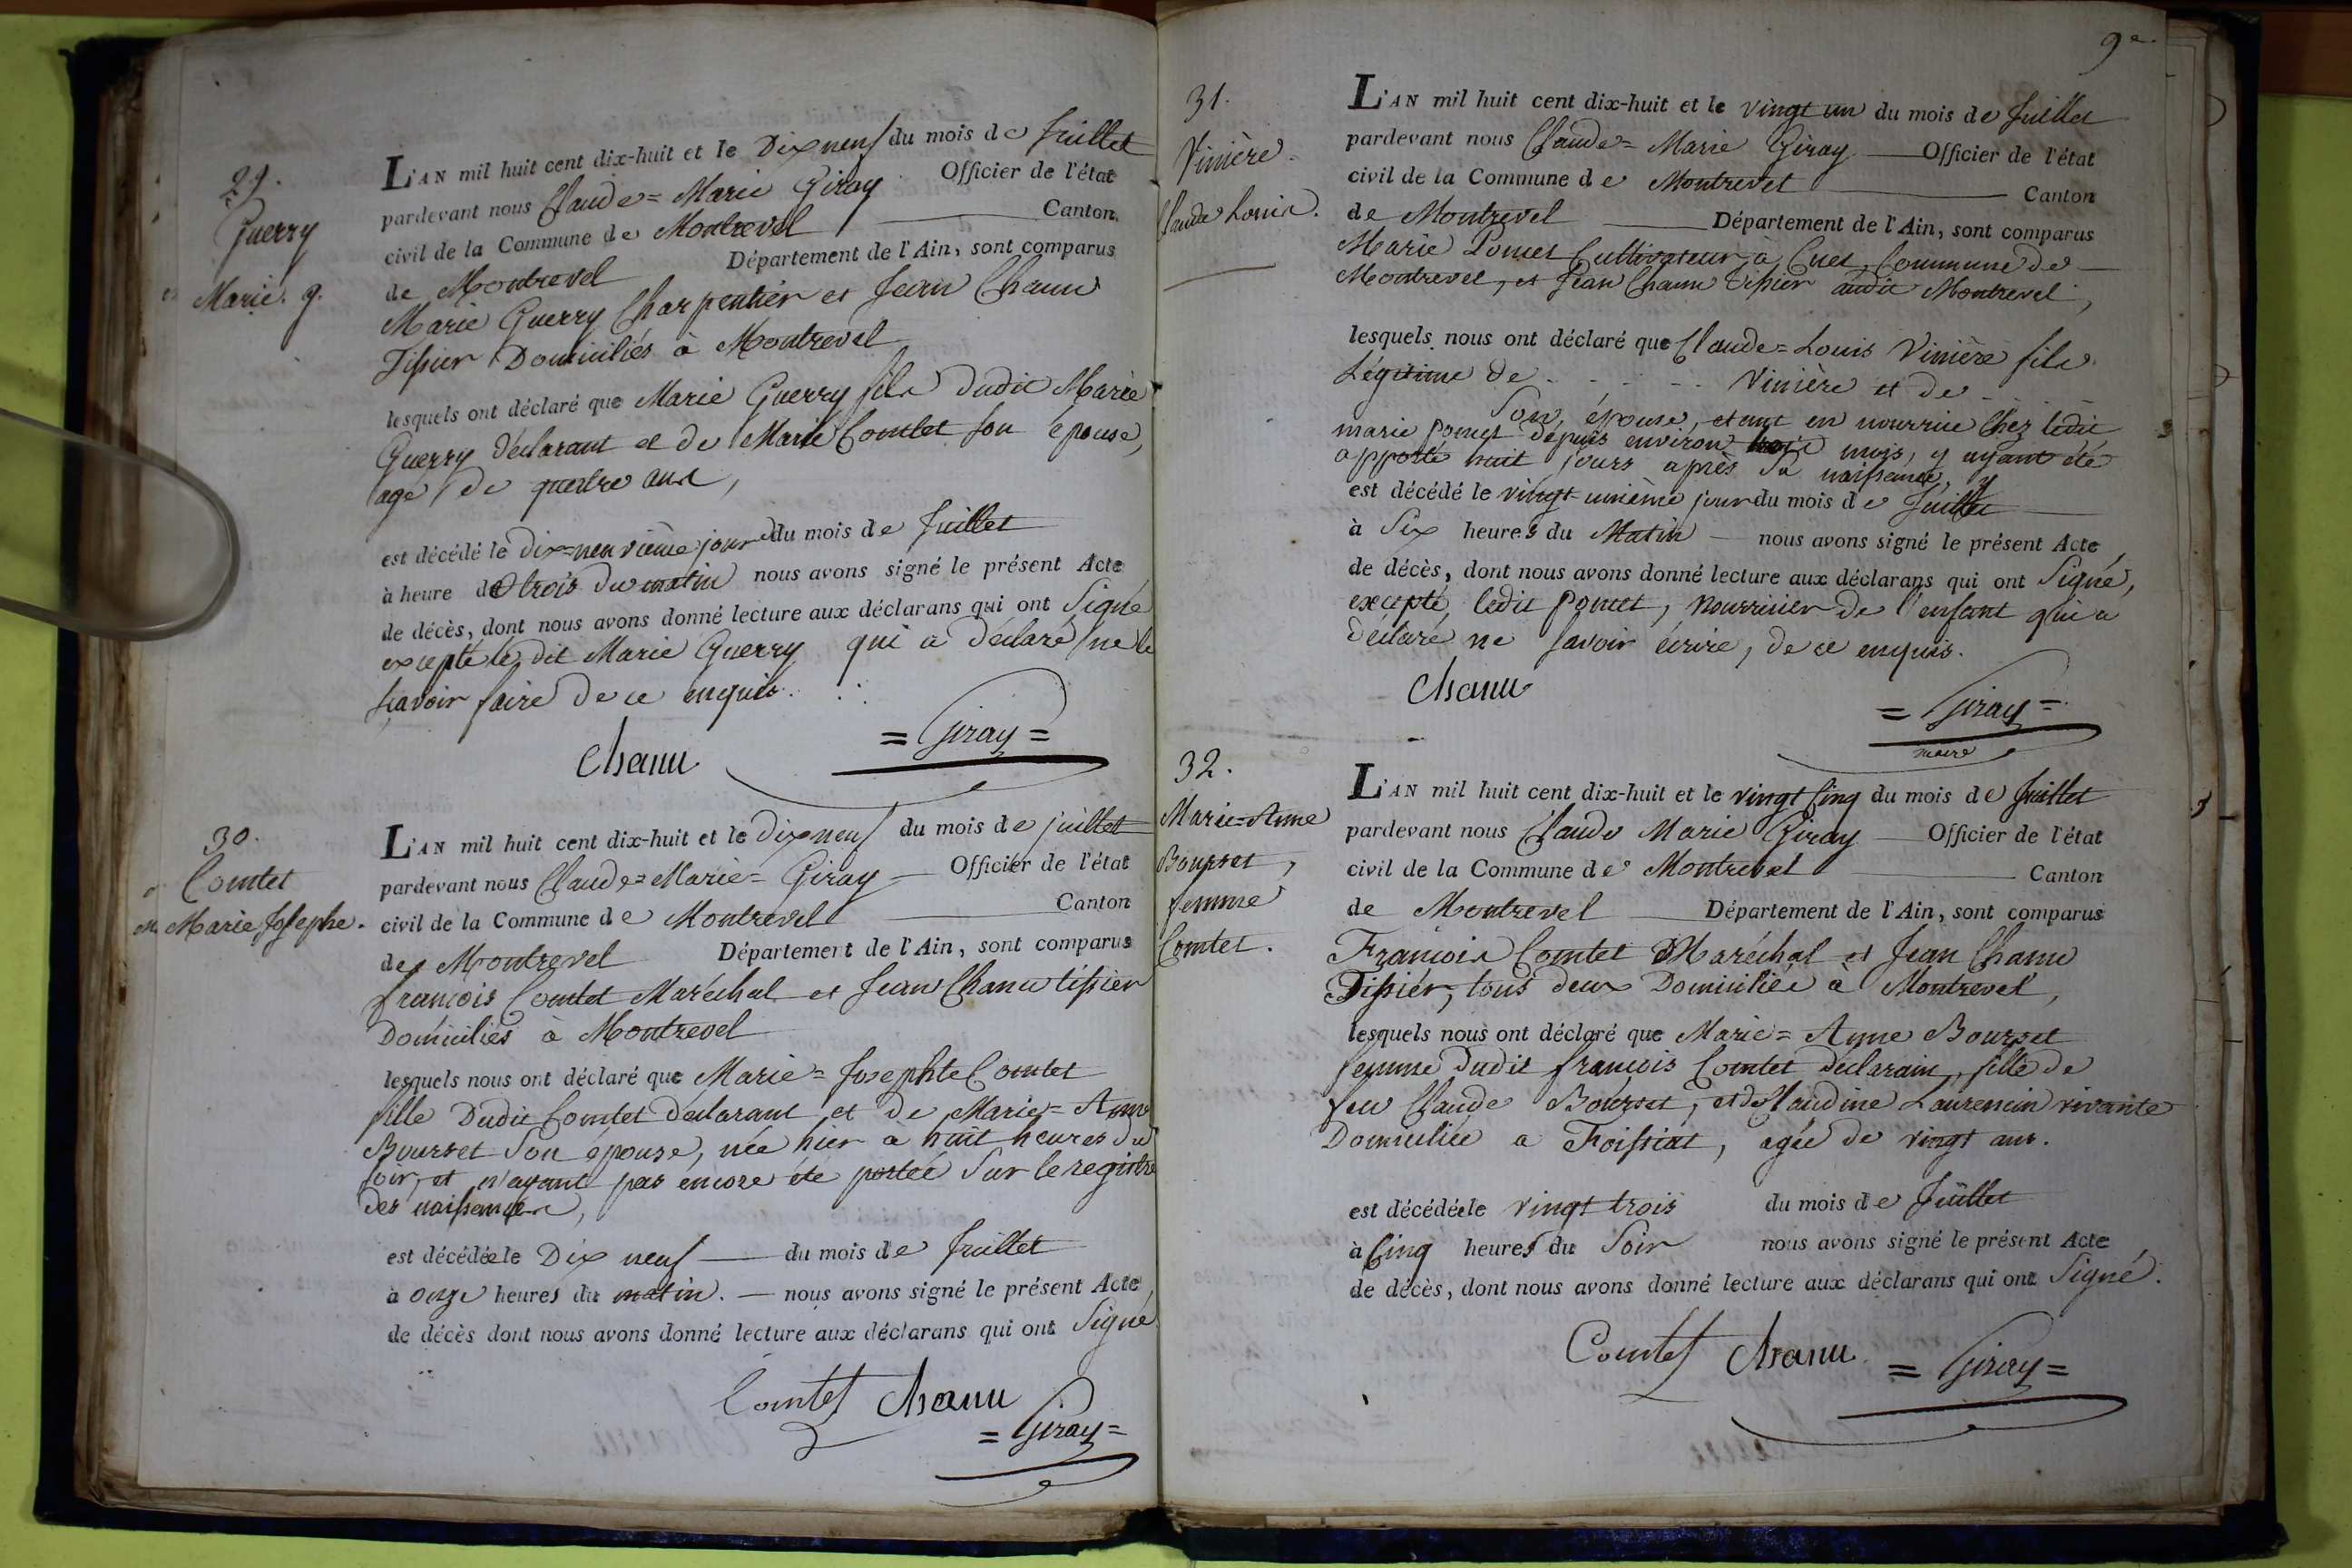 29.
Guerry
Marie. g.
L'AN mil huit cent dix-huit et le Dix neuf du mois de Juillet
pardevant nous Claude=Marie Giray Officier de l'état
civil de la Commune de Montrevel Canton
de Montrevel Département de l'Ain, sont comparus
Marie Guerry Charpentier et Jean Chanu
Tissier Domiciliés à Montrevel
lesquels ont déclaré que Marie Guerry fils dudit Marie
Guerry déclarant et de Marie Comtet son épouse,
agé de quatre ans,
est décédé le dix=neuvième jour du mois de Juillet
à heure de trois du matin nous avons signé le présent Acte
de décès, dont nous avons donné lecture aux déclarans qui ont Signé
excepté le dit Marie Guerry qui a déclaré ne le
sçavoir faire de ce enquis.
Chanu
= Giray =
30.
Comtet
Marie Josephe.
L'AN mil huit cent dix-huit et le dix neuf du mois de juillet
pardevant nous Claude=Marie= Giray Officier de l'état
civil de la Commune de Montrevel Canton
de Montrevel Département de l'Ain, sont comparus
françois Comtet Maréchal et Jean Chanu tissier
Domiciliés à Montrevel
lesquels nous ont déclaré que Marie=Josephte Comtet
fille Dudit Comtet déclarant et de Marie=Anne
Bourset Son épouse, née hier à huit heures du
Soir, et n'ayant pas encore été portée Sur le registre
des naissances,
est décédée le Dix neuf du mois de Juillet
à onze heures du matin. nous avons signé le présent Acte,
de décès dont nous avons donné lecture aux déclarans qui ont Signé
Comtet Chanu
= Giray =
9e.
31.
Vinière
Claude Louis.
L'AN mil huit cent dix-huit et le vingt un du mois de Juillet
pardevant nous Claude=Marie Giray Officier de l'état
civil de la Commune de Montrevel Canton
de Montrevel Département de l'Ain, sont comparus
Marie Poncet Cultivateur à Cuet, Commune de
Montrevel, et Jean Chanu Tissier audit Montrevel,
lesquels nous ont déclaré que Claude=Louis Vinière fils
Légitime de . - - - - Vinière et de - -
Son épouse, etant en nourrice Chez ledit
marie poncet depuis environ mois, y ayant été
apporté huit jours après Sa naissance, y
est décédé le vingt=unième jour du mois de Juillet
à Six heures du Matin nous avons signé le présent Acte,
de décès, dont nous avons donné lecture aux déclarans qui ont Signé,
excepté ledit Poncet, Nourricier de l'enfant qui a
déclaré ne Savoir écrire, de ce enquis.
Chanu
= Giray =
maire
32.
Marie=Anne
Bourset,
femme
Comtet.
L'AN mil huit cent dix-huit et le vingt Cinq du mois de Juillet
pardevant nous Claude Marie Giray Officier de l'état
civil de la Commune de Montrevel Canton
de Montrevel Département de l'Ain, sont comparus
François Comtet Maréchal et Jean Chanu
Tissier, tous deux Domiciliés à Montrevel,
lesquels nous ont déclaré que Marie=Anne Bourset
femme dudit françois Comtet déclarant, fille de
feu Claude Bourset, et de Claudine Laurencin vivante
Domiciliée a Foissiat, agée de vingt ans.
est décédée le vingt trois du mois de Juillet
à Cinq heures du Soir nous avons signé le présent Acte,
de décès, dont nous avons donné lecture aux déclarans qui ont Signé.
Comtet Chanu = Giray =